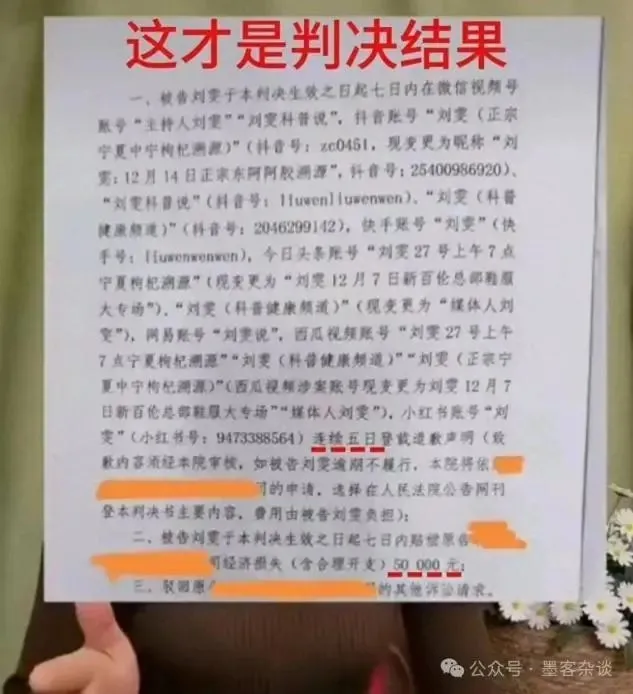 这才是判决结果
一、被告刘雯于本判决生效之日起七日内在微信视频号
账号“主持人刘雯”“刘雯科普说”，抖音账号“刘雯（正宗
宁夏中宁枸杞溯源）”（抖音号：zc0451，现变更为昵称“刘
雯：12月14日正宗东阿阿胶溯源”，抖音号：25400986920）、
“刘雯科普说”（抖音号：liuwenliuwenwen）、“刘雯（科普
健康频道）”（抖音号：2046299142），快手账号“刘雯”（快
手号：liuwenwenwen），今日头条账号“刘雯27号上午7点
宁夏枸杞溯源”（现变更为“刘雯12月7日新百伦总部鞋服
大专场”）、“刘雯（科普健康频道）”（现变更为“媒体人刘
雯”），网易账号“刘雯说”，西瓜视频账号“刘雯27号上午
7点宁夏枸杞溯源”“刘雯（科普健康频道）”“刘雯（正宗宁
夏中宁枸杞溯源）”（西瓜视频涉案账号现变更为刘雯12月7
日新百伦总部鞋服大专场”“媒体人刘雯”），小红书账号“刘
雯”（小红书号：9473388564）连续五日登载道歉声明（致
歉内容须经本院审核，如被告刘雯逾期不履行，本院将依
司的申请，选择在人民法院公告网刊
登本判决书主要内容，费用由被告刘雯负担）；
二、被告刘雯于本判决生效之日起七日内赔偿原告
司经济损失（含合理开支）50 000元；
三、驳回原
的其他诉讼请求。
公众号·墨客杂谈